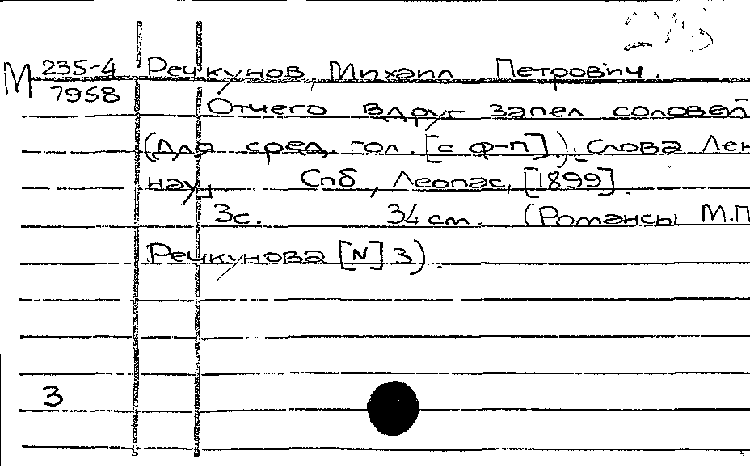 М 235-4 Речкунов, Михаил Петрович.
7958 Отчего вдруг запел соловей
(Для сред. гол. [с ф-п]). Слова Лен
науц Спб, Леопас, [1899].
3с. 34 см. (Романсы М.П
Речкунова [N] 3).
3